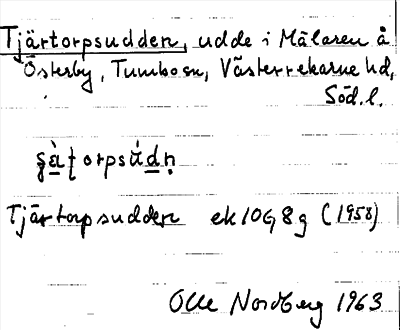 Tjärtorpsudden, udde i Mälaren å
Österby, Tumbo sn, Västerrekarne hd,
Söd. l.
Tjärtorpsudden ek 10G 8g (1958)
Olle Nordberg 1963